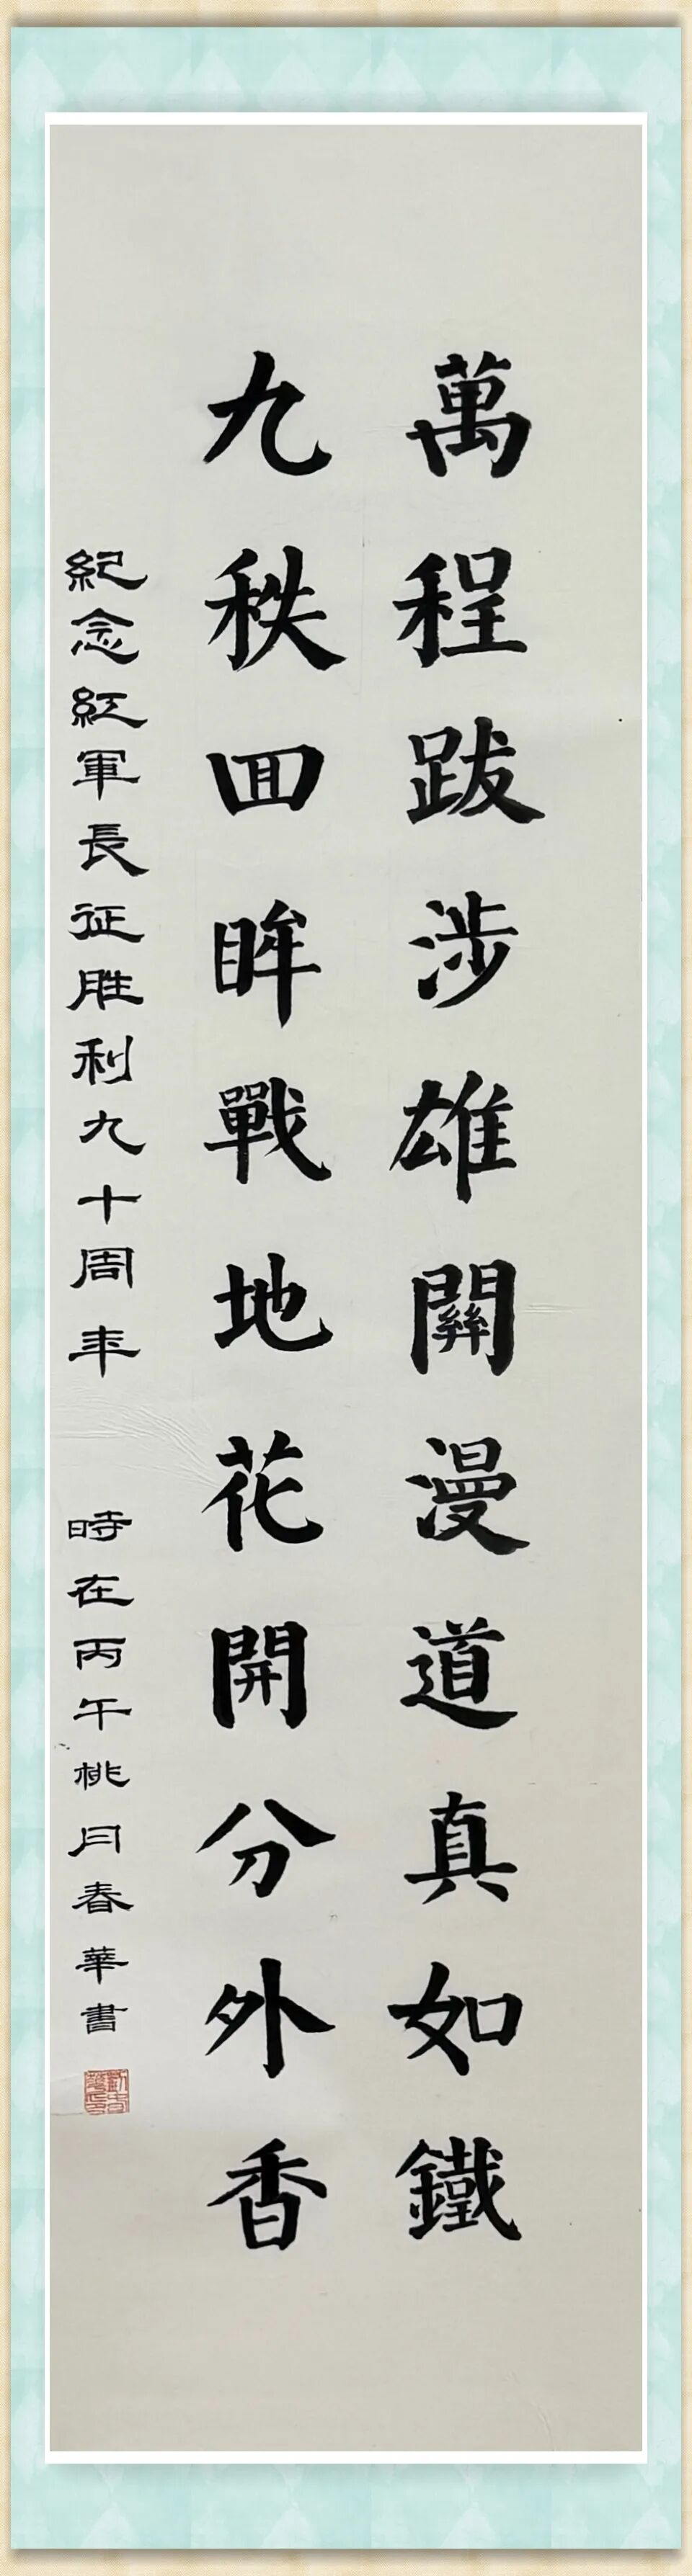 萬程跋涉雄關漫道真如鐵
九秩回眸戰地花開分外香
紀念紅軍長征胜利九十周年 時在丙午桃月春華書